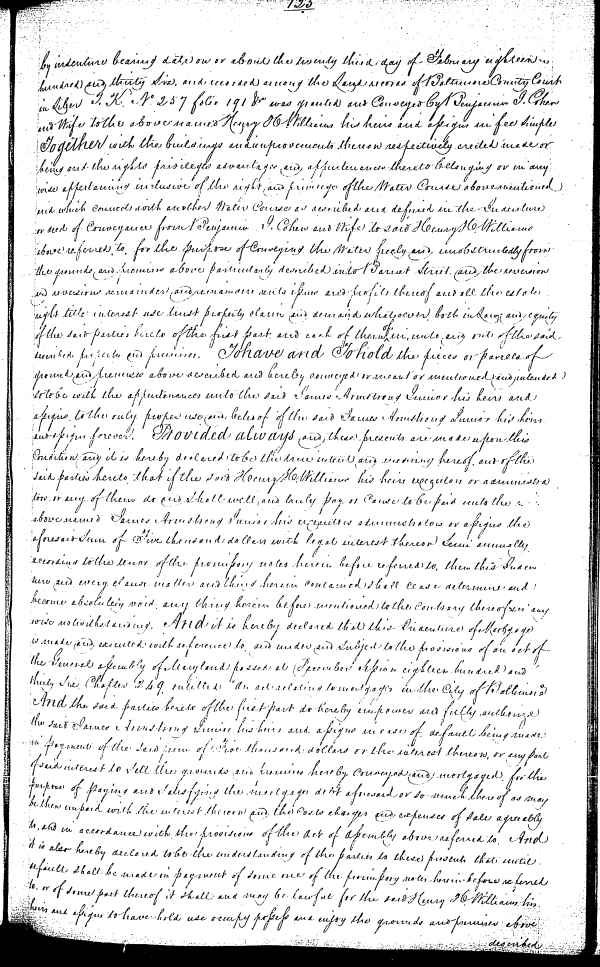 123
by indenture bearing date on or about the twenty third day of February eighteen
hundred and thirty Six, and recorded among the Land records of Baltimore County Court
in Liber T. K. No 257 folio 191 &c was granted and Conveyed by Benjamin I. Cohen
and Wife to the above named Henry H. Williams his heirs and assigns in fee simple
Together with the buildings and improvements thereon respectively erected made or
being and the rights privileges advantages and appurtenances thereto belonging or in any
wise appertaining inclusive of the right and privilege of the Water Course abovementioned
and which connects with another Water Course as described and defined in the Indenture
or deed of Conveyance from Benjamin I. Cohen and Wife to said Henry H. Williams
above referred to, for the purpose of Conveying the Water freely and unobstructedly from
the grounds and premises above particularly described into Barnet Street, and the reversion
and reversions remainder and remainders rents issues and profits thereof and all the estate
right title interest use trust property claim and demand whatsoever, both in Law and equity
of the said parties hereto of the first part and each of them of in, unto, any out of the said
described projects and premises. To have and To hold the pieces or parcels of
ground and premises above described and hereby conveyed or meant or mentioned and intended
so to be with the appurtenances unto the said James Armstrong Junior his heirs and
assigns, to the only proper use and behoof of the said James Armstrong Junior his heirs
and assigns forever. Provided always and these presents are made upon this
Condition, and it is hereby declared to be the true intent and meaning hereof, and of the
said parties hereto, that if the said Henry H. Williams his heirs executors or administra
tors, or any of them do and shall well and truly pay or Cause to be paid unto the
abovenamed James Armstrong Junior his executors administrators or assigns the
aforesaid Sum of Five thousand dollars with legal interest thereon Semi annually,
according to the tenor of the promissory notes herein before referred to, then this Inden
ture and every clause matter and thing herein contained shall cease determine and
become absolutely void, any thing herein before mentioned to the contrary thereof in any
wise notwithstanding. And it is hereby declared that this Indenture of Mortgage
is made and executed with reference to and under and subject to the provisions of an act of
the General Assembly of Maryland passed at December Session eighteen hundred and
thirty Six, Chapter 249, entitled "An act relating to mortgages in the City of Baltimore"
And the said parties hereto of the first part do hereby empower and fully authorize
the said James Armstrong Junior his heirs and assigns in case of default being made
in payment of the said sum of Five thousand dollars or the interest thereon, or any part
of said interest to Sell the grounds and premises hereby conveyed and mortgaged, for the
purpose of paying and Satisfying the mortgage debt aforesaid or so much thereof as may
be then unpaid with the interest thereon and the costs charges and expenses of sale agreeably
to and in accordance with the provisions of the act of assembly above referred to. And
it is also hereby declared to be the understanding of the parties to these presents that until
default shall be made in payment of some one of the promissory notes herein before referred
to, or of some part thereof it shall and may be lawful for the said Henry H. Williams his
heirs and assigns to have hold use occupy possess and enjoy the grounds and premises above
described